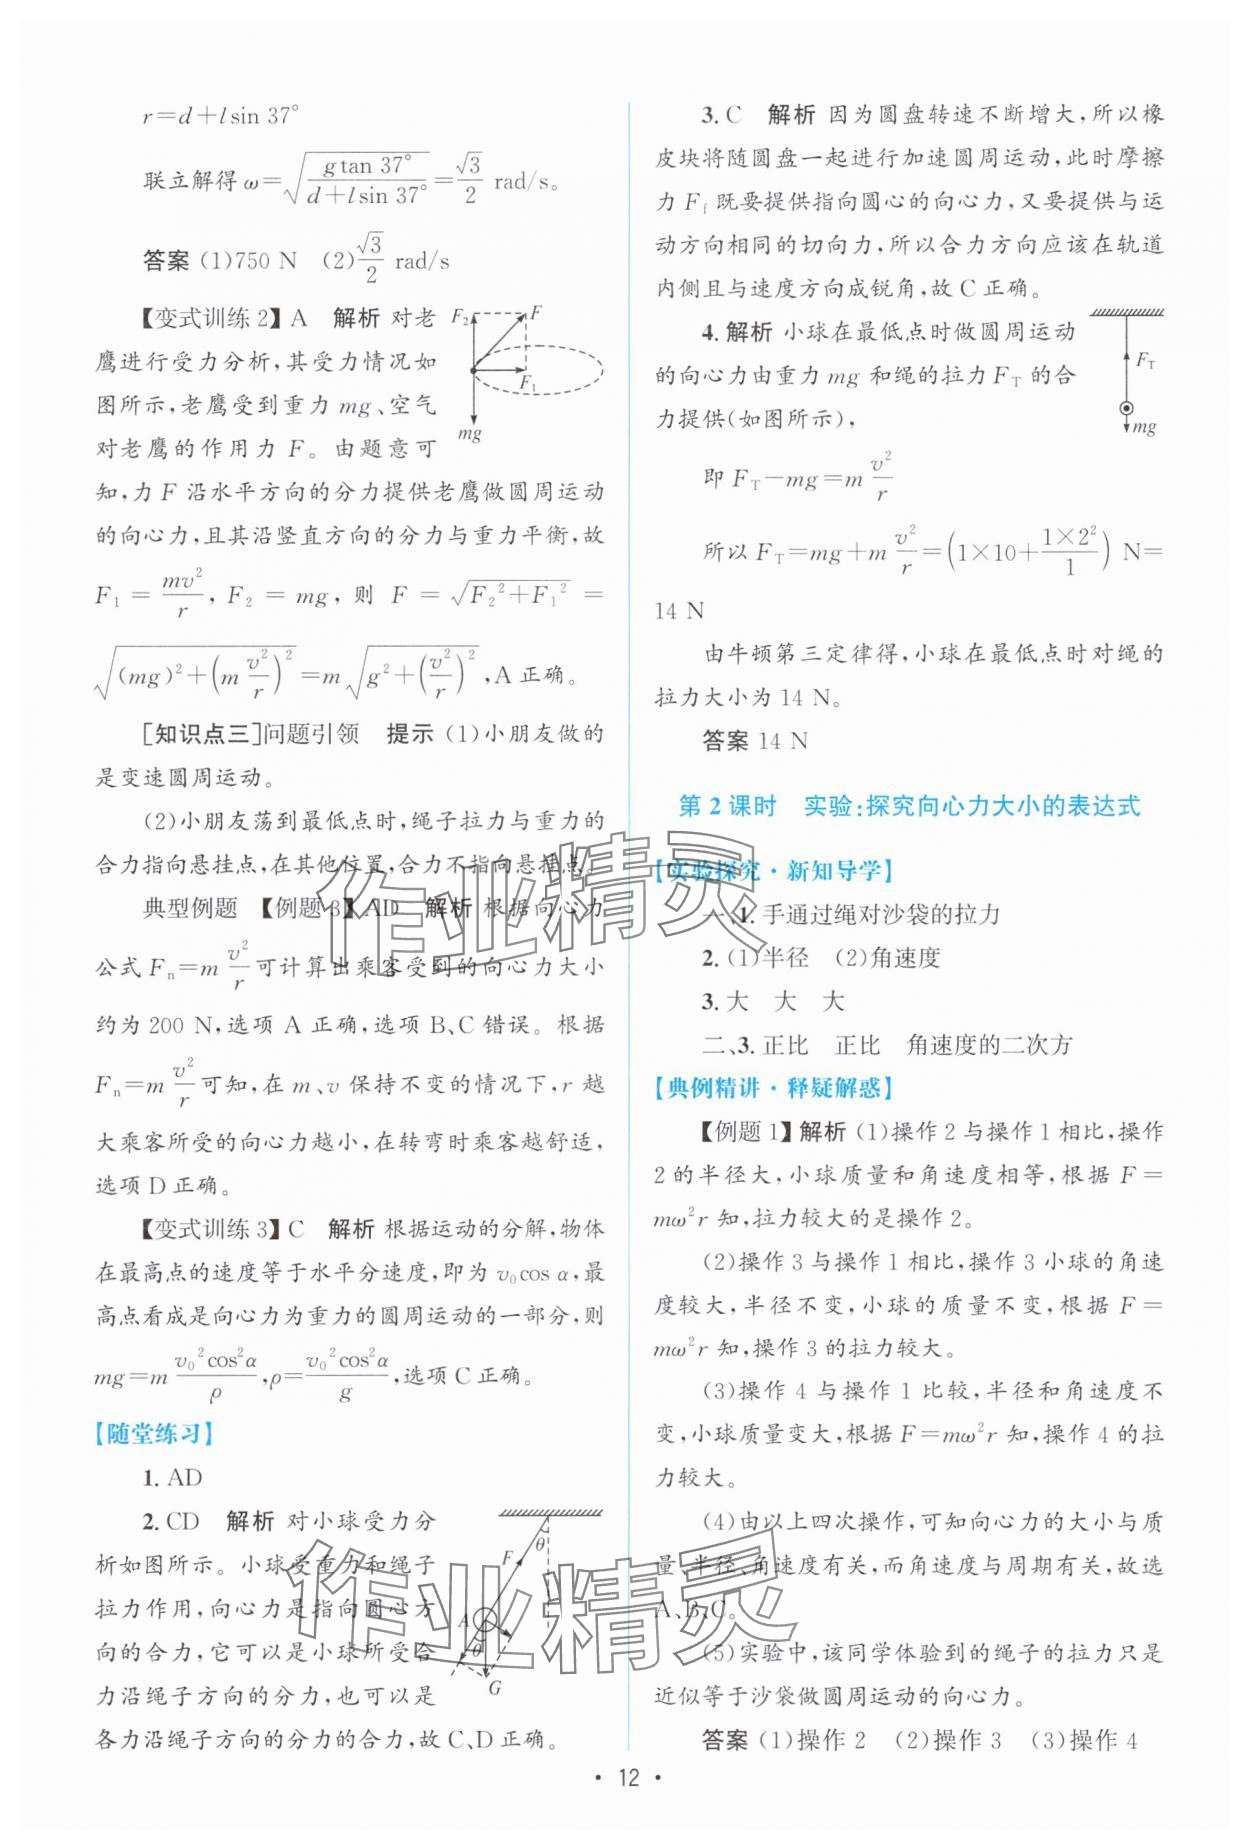 r=d+lsin 37°
联立解得 ω=√(g tan 37°/(d+lsin 37°))=√3/2 rad/s。
答案 (1)750 N (2)√3/2 rad/s
【变式训练2】A 解析 对老
鹰进行受力分析,其受力情况如
图所示,老鹰受到重力 mg、空气
对老鹰的作用力 F。由题意可
知,力 F 沿水平方向的分力提供老鹰做圆周运动
的向心力,且其沿竖直方向的分力与重力平衡,故
F₁ = mv²/r, F₂ = mg, 则 F = √(F₂²+F₁²) =
√((mg)²+(m v²/r)²)=m√(g²+(v²/r)²),A 正确。
F₂
F
F₁
mg
[知识点三]问题引领 提示 (1)小朋友做的
是变速圆周运动。
(2)小朋友荡到最低点时,绳子拉力与重力的
合力指向悬挂点,在其他位置,合力不指向悬挂点。
典型例题 【例题3】AD 解析 根据向心力
公式 Fₙ=m v²/r 可计算出乘客受到的向心力大小
约为 200 N,选项 A 正确,选项 B、C 错误。根据
Fₙ=m v²/r 可知,在 m、v 保持不变的情况下,r 越
大乘客所受的向心力越小,在转弯时乘客越舒适,
选项 D 正确。
【变式训练3】C 解析 根据运动的分解,物体
在最高点的速度等于水平分速度,即为 v₀cos α,最
高点看成是向心力为重力的圆周运动的一部分,则
mg=m v₀²cos²α/ρ,ρ=v₀²cos²α/g,选项 C 正确。
【随堂练习】
1. AD
2. CD 解析 对小球受力分
析如图所示。小球受重力和绳子
拉力作用,向心力是指向圆心方
向的合力,它可以是小球所受合
力沿绳子方向的分力,也可以是
各力沿绳子方向的分力的合力,故 C、D 正确。
θ
F
A
θ
G
3. C 解析 因为圆盘转速不断增大,所以橡
皮块将随圆盘一起进行加速圆周运动,此时摩擦
力 F_f 既要提供指向圆心的向心力,又要提供与运
动方向相同的切向力,所以合力方向应该在轨道
内侧且与速度方向成锐角,故 C 正确。
4. 解析 小球在最低点时做圆周运动
的向心力由重力 mg 和绳的拉力 F_T 的合
力提供(如图所示),
F_T
mg
即 F_T−mg=m v²/r
所以 F_T=mg+m v²/r=(1×10+1×2²/1) N=
14 N
由牛顿第三定律得,小球在最低点时对绳的
拉力大小为 14 N。
答案 14 N
第 2 课时 实验:探究向心力大小的表达式
【实验探究·新知导学】
一、1. 手通过绳对沙袋的拉力
2. (1)半径 (2)角速度
3. 大 大 大
二、3. 正比 正比 角速度的二次方
【典例精讲·释疑解惑】
【例题1】解析 (1)操作 2 与操作 1 相比,操作
2 的半径大,小球质量和角速度相等,根据 F=
mω²r 知,拉力较大的是操作 2。
(2)操作 3 与操作 1 相比,操作 3 小球的角速
度较大,半径不变,小球的质量不变,根据 F=
mω²r 知,操作 3 的拉力较大。
(3)操作 4 与操作 1 比较,半径和角速度不
变,小球质量变大,根据 F=mω²r 知,操作 4 的拉
力较大。
(4)由以上四次操作,可知向心力的大小与质
量、半径、角速度有关,而角速度与周期有关,故选
A、B、C。
(5)实验中,该同学体验到的绳子的拉力只是
近似等于沙袋做圆周运动的向心力。
答案 (1)操作 2 (2)操作 3 (3)操作 4
作业精灵
作业精灵
· 12 ·